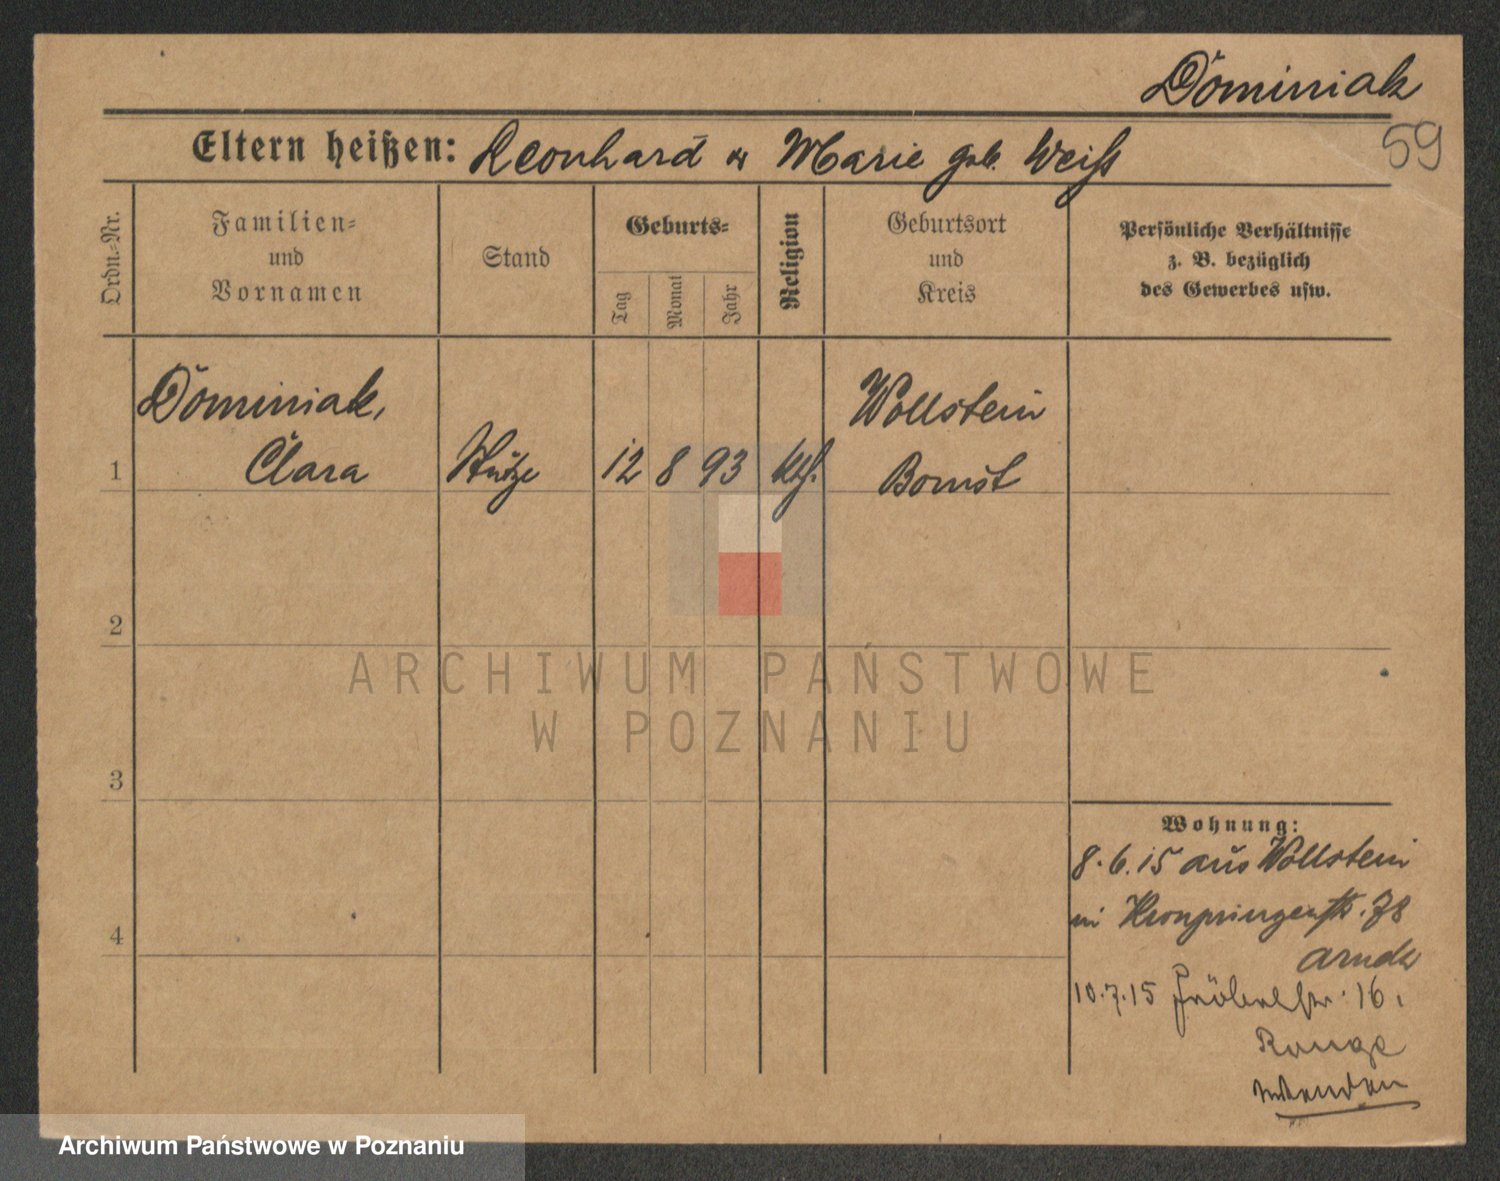 Dominiak
59
Eltern heißen: Leonhard u Marie geb. Weiß
Ordn.-Nr.
Familien-
und
Vornamen
Stand
Geburts-
Tag
Monat
Jahr
Religion
Geburtsort
und
Kreis
Persönliche Verhältnisse
z. B. bezüglich
des Gewerbes usw.
1
Dominiak,
Clara
Stütze
12
8
93
kth.
Wollstein
Bomst
2
3
4
ARCHIWUM PAŃSTWOWE
W POZNANIU
Wohnung:
8.6.15 aus Wollstein
in Kronprinzenstr. 78
Arndt
10.7.15 Fröbelstr. 16.
Range
wenden
Archiwum Państwowe w Poznaniu